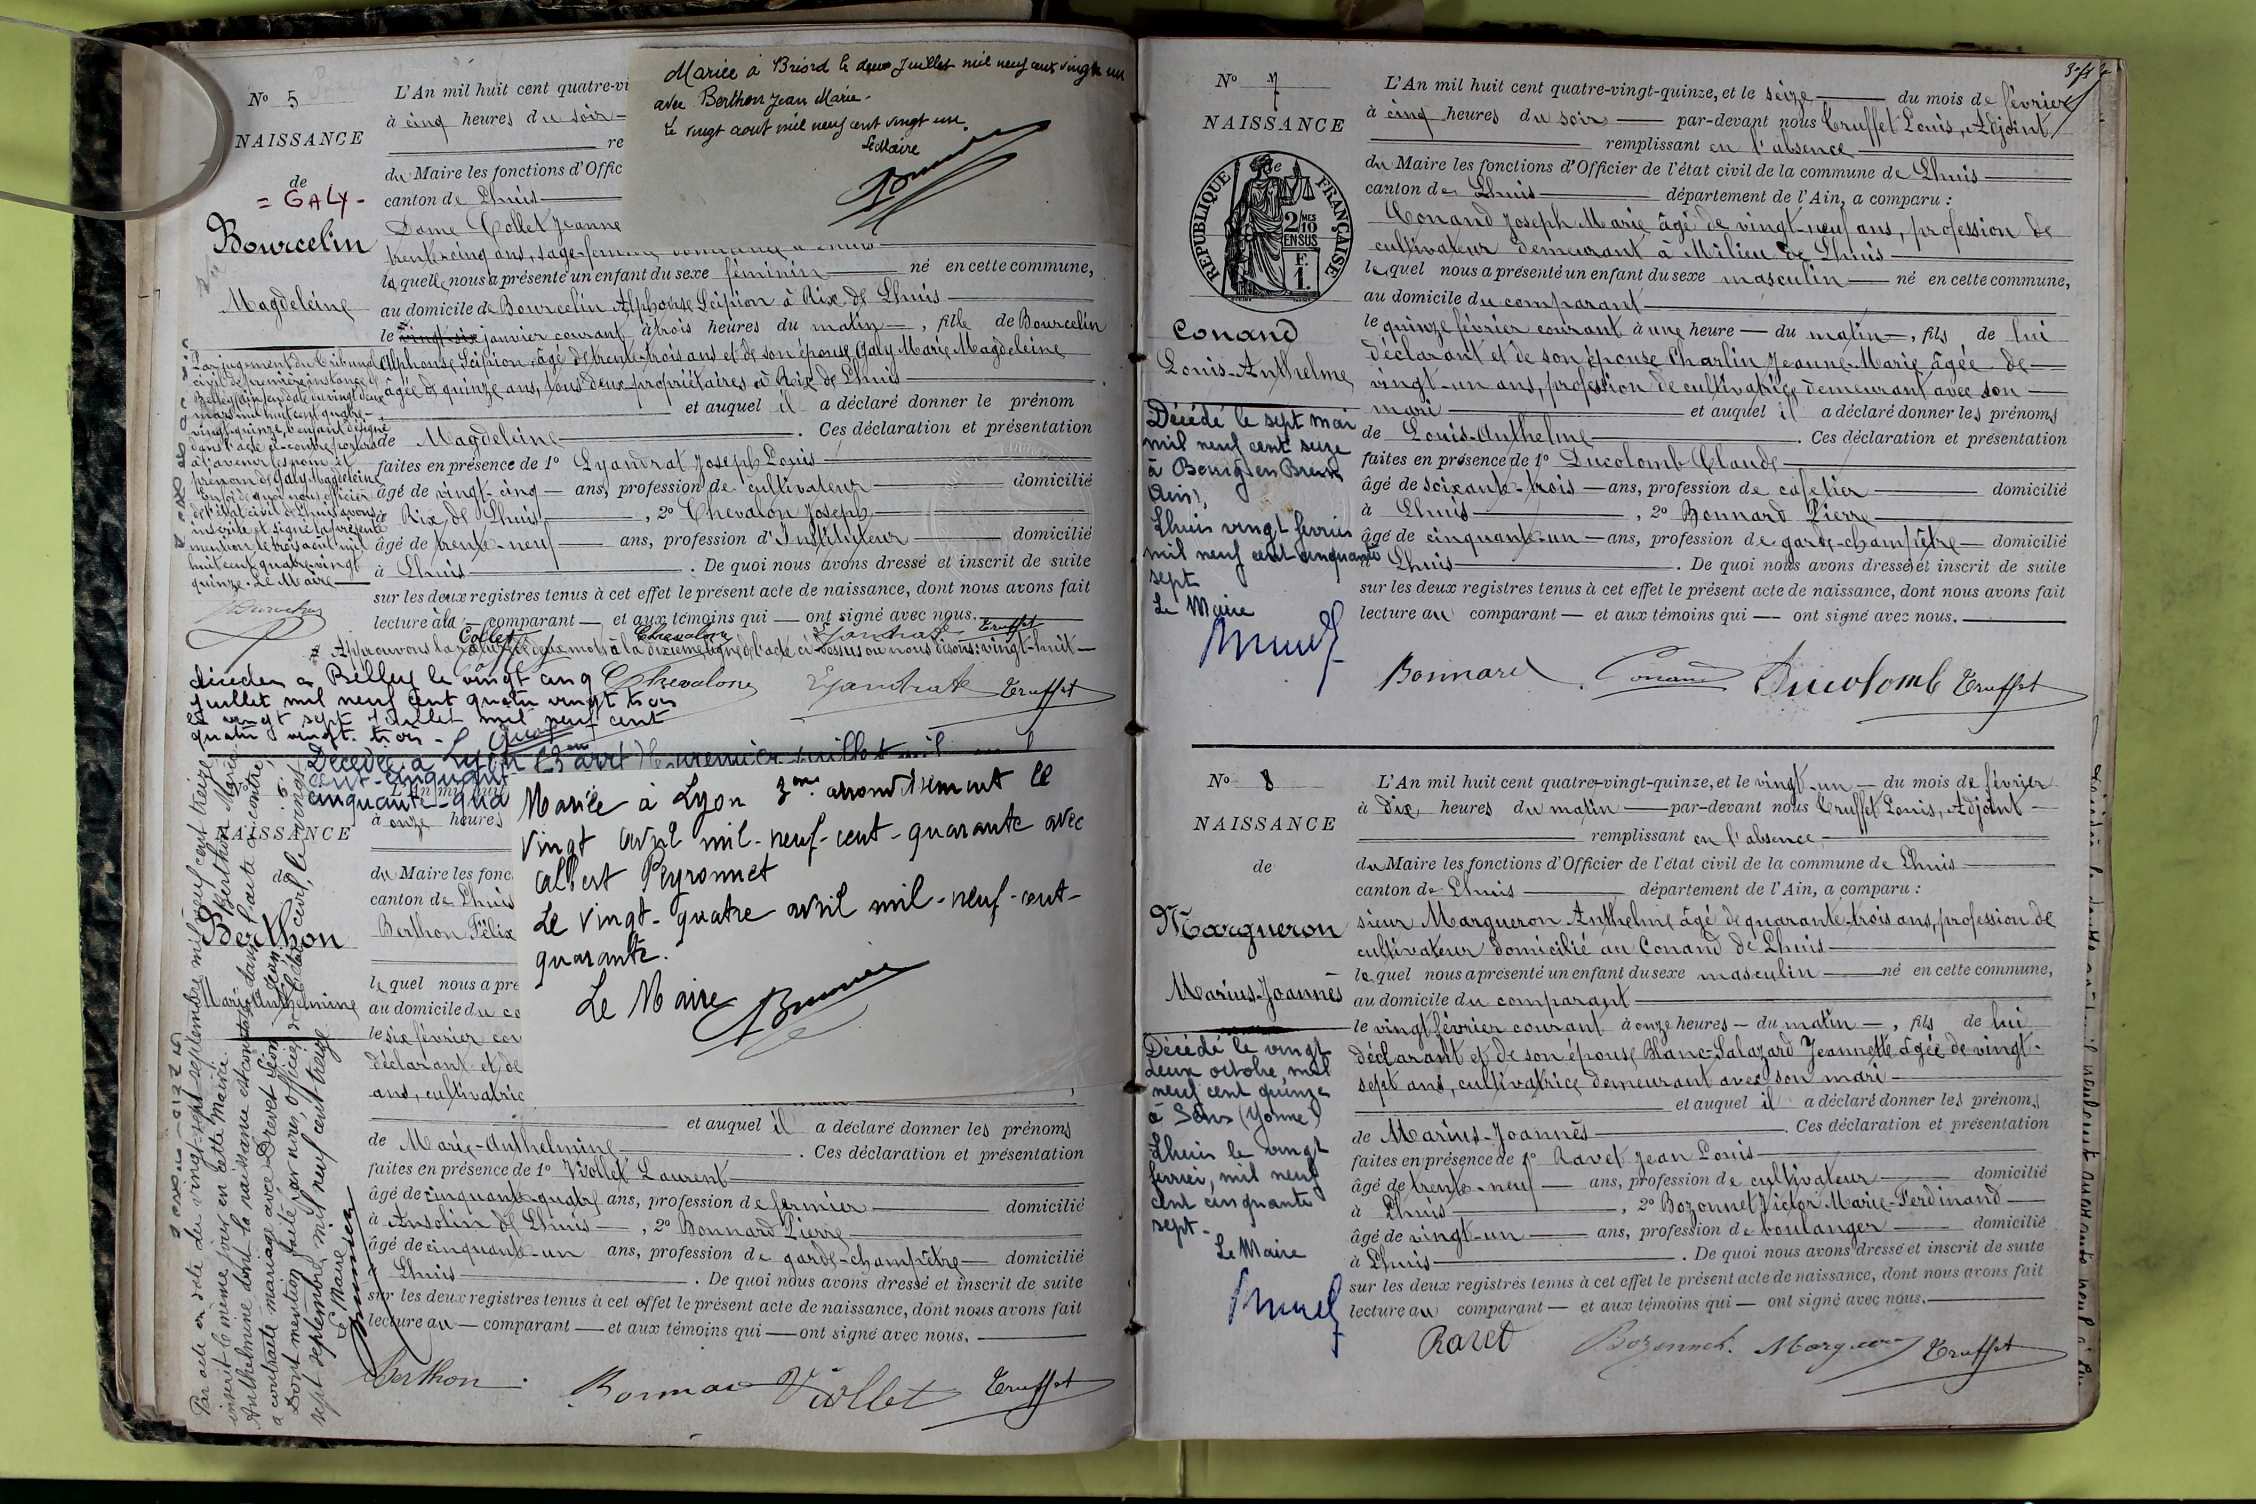 Nº 5
NAISSANCE
de
= GALY -
Bourcelin
Magdeleine
Mariée à Briord le deux Juillet mil neuf cent vingt un
avec Berthon Jean Marie.
Le vingt aout mil neuf cent vingt un.
Le Maire
L'An mil huit cent quatre-vi
à cinq heures du soir
re
du Maire les fonctions d'Offic
canton de Lhuis
Dame Collet Jeanne
trente cinq ans, sage-femme
laquelle nous a présenté un enfant du sexe féminin né en cette commune,
au domicile de Bourcelin Alphonse Scipion à Rix de Lhuis
le vingt-six janvier courant à trois heures du matin, fille de Bourcelin
Alphonse Scipion âgé de trente-trois ans et de son épouse Galy Marie Magdeleine
âgée de quinze ans, tous deux propriétaires à Rix de Lhuis
et auquel il a déclaré donner le prénom
de Magdeleine. Ces déclaration et présentation
faites en présence de 1º Lyandrat Joseph Louis
âgé de vingt-cinq ans, profession de cultivateur domicilié
à Rix de Lhuis, 2º Chevalon Joseph
âgé de trente-neuf ans, profession d'Instituteur domicilié
à Lhuis. De quoi nous avons dressé et inscrit de suite
sur les deux registres tenus à cet effet le présent acte de naissance, dont nous avons fait
lecture à la comparant et aux témoins qui ont signé avec nous.
Collet Chevalon Lyandrat Truffet
Approuvons la rature de deux mots à la dixième ligne de l'acte ci-dessus ou nous disons: vingt-huit
Chevalon Lyandrat Truffet
Par jugement du Tribunal
civil de première instance de
Belley (Ain) en date du vingt deux
mars mil huit cent quatre-
vingt-quinze, l'enfant désigné
dans l'acte ci-contre portera
à l'avenir les nom et
prénom de Galy Magdeleine
En foi de quoi nous officier
de l'état civil de Lhuis avons
inscrite et signé la présente
mention le trois août mil
huit cent quatre-vingt
quinze. Le Maire
décédée à Belley le vingt cinq
juillet mil neuf cent quatre vingt trois
le vingt sept juillet mil neuf cent
quatre vingt trois -
Décédée à Lyon (3e arrt) le premier juillet mil
cent-cinquant
cinquante-qua
6
NAISSANCE
de
Berthon
Marie Anthelmine
Mariée à Lyon 3me arrondissement le
vingt avril mil-neuf-cent-quarante avec
Albert Peyronnet
Le vingt-quatre avril mil-neuf-cent-
quarante.
Le Maire
à onze heures
du Maire les fonc
canton de Lhuis
Berthon Félix
lequel nous a pré
au domicile du co
le six février cou
déclarant et de
ans, cultivatric
et auquel il a déclaré donner les prénoms
de Marie-Anthelmine. Ces déclaration et présentation
faites en présence de 1º Viollet Laurent
âgé de cinquante-quatre ans, profession de fermier domicilié
à Ansolin de Lhuis, 2º Bonnard Pierre
âgé de cinquante-un ans, profession de garde-champêtre domicilié
Lhuis. De quoi nous avons dressé et inscrit de suite
sur les deux registres tenus à cet effet le présent acte de naissance, dont nous avons fait
lecture au comparant et aux témoins qui ont signé avec nous.
Berthon. Bonnard Viollet Truffet
Par acte en date du vingt-sept septembre mil neuf cent treize
inscrit le même jour en cette mairie Berthon Marie
Anthelmine dont la naissance est constatée dans l'acte ci-contre,
a contracté mariage avec Drevet Léon Jean
Dont mention faite par nous, officier de l'état civil, le vingt
sept septembre mil neuf cent treize
Le Maire
Nº 7
NAISSANCE
de
RÉPUBLIQUE FRANÇAISE
2 MES 10
EN SUS
F. 1.
Conand
Louis-Anthelme
Décédé le sept mai
mil neuf cent seize
à Bourg en Bresse
(Ain).
Lhuis vingt fevrier
mil neuf cent cinquante
sept
Le Maire
L'An mil huit cent quatre-vingt-quinze, et le seize du mois de février
à cinq heures du soir par-devant nous Truffet Louis, Adjoint
remplissant en l'absence
du Maire les fonctions d'Officier de l'état civil de la commune de Lhuis
canton de Lhuis département de l'Ain, a comparu :
Conand Joseph Marie âgé de vingt-neuf ans, profession de
cultivateur demeurant à Milieu de Lhuis
lequel nous a présenté un enfant du sexe masculin né en cette commune,
au domicile du comparant
le quinze février courant à une heure du matin, fils de lui
déclarant et de son épouse Charlin Jeanne-Marie âgée de
vingt-un ans, profession de cultivatrice demeurant avec son
mari et auquel il a déclaré donner les prénoms
de Louis-Anthelme. Ces déclaration et présentation
faites en présence de 1º Ducolomb Claude
âgé de soixante-trois ans, profession de cafetier domicilié
à Lhuis, 2º Bonnard Pierre
âgé de cinquante-un ans, profession de garde-champêtre domicilié
à Lhuis. De quoi nous avons dressé et inscrit de suite
sur les deux registres tenus à cet effet le présent acte de naissance, dont nous avons fait
lecture au comparant et aux témoins qui ont signé avec nous.
Bonnard Conand Ducolomb Truffet
Nº 8
NAISSANCE
de
Margueron
Marius-Joannès
Décédé le vingt
deux octobre, mil
neuf cent quinze
à Sens (Yonne)
Lhuis le vingt
fevrier, mil neuf
cent cinquante
sept -
Le Maire
L'An mil huit cent quatre-vingt-quinze, et le vingt-un du mois de février
à dix heures du matin par-devant nous Truffet Louis, Adjoint
remplissant en l'absence
du Maire les fonctions d'Officier de l'état civil de la commune de Lhuis
canton de Lhuis département de l'Ain, a comparu :
sieur Margueron Anthelme âgé de quarante-trois ans, profession de
cultivateur domicilié au Conand de Lhuis
lequel nous a présenté un enfant du sexe masculin né en cette commune,
au domicile du comparant
le vingt février courant à onze heures du matin, fils de lui
déclarant et de son épouse Blanc-Salazard Jeannette âgée de vingt-
sept ans, cultivatrice demeurant avec son mari
et auquel il a déclaré donner les prénoms
de Marius-Joannès. Ces déclaration et présentation
faites en présence de 1º Ravet Jean Louis
âgé de trente-neuf ans, profession de cultivateur domicilié
à Lhuis, 2º Bozonnet Victor Marie-Ferdinand
âgé de vingt-un ans, profession de boulanger domicilié
à Lhuis. De quoi nous avons dressé et inscrit de suite
sur les deux registres tenus à cet effet le présent acte de naissance, dont nous avons fait
lecture au comparant et aux témoins qui ont signé avec nous.
Ravet Bozonnet. Margueron Truffet